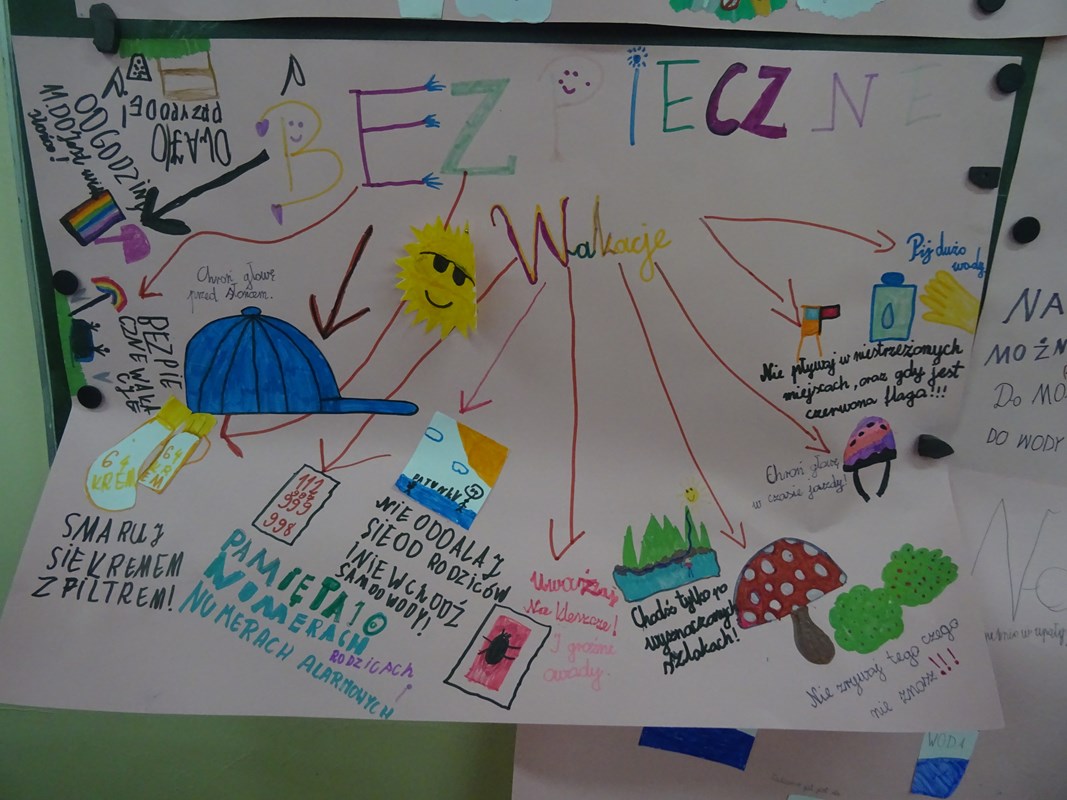 BEZPIECZNE
Wakacje
DBAJ O
PRZYRODĘ!
Chroń głowę
przed słońcem.
BEZPIE
CZNE WAKA
CJE
64
KREM
64
KREM
SMARUJ
SIĘ KREMEM
Z FILTREM!
112
999
998
PAMIĘTAJ O
NUMERACH
NUMERACH ALARMOWYCH
RODZICACH
NIE ODDALAJ
SIĘ OD RODZICÓW
I NIE WCHODŹ
SAM DO WODY!
Uważaj
Na kleszcze!
I groźne
owady.
Chodź tylko po
wyznaczonych
szlakach!
Nie zrywaj tego czego
nie znasz!!!
Chroń głowę
w czasie jazdy!
Nie pływaj w niestrzeżonych
miejscach, oraz gdy jest
czerwona flaga!!!
Pij dużo
wody
NA
MOŻN
DO
DO WODY
WODA